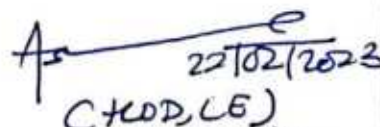 22/02/2023
(HOD, CE)